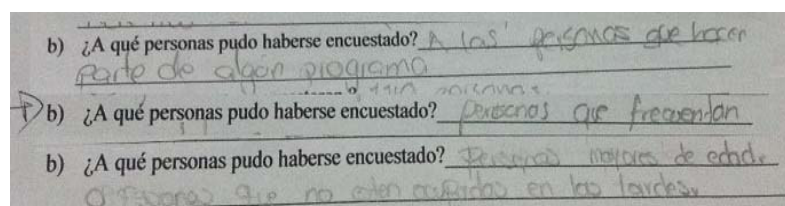 b) ¿A qué personas pudo haberse encuestado? A las personas que hacen
parte de algún programa
b) ¿A qué personas pudo haberse encuestado? personas que frecuentan
b) ¿A qué personas pudo haberse encuestado? Personas mayores de edad.
o personas que no esten ocupadas en las tardes.